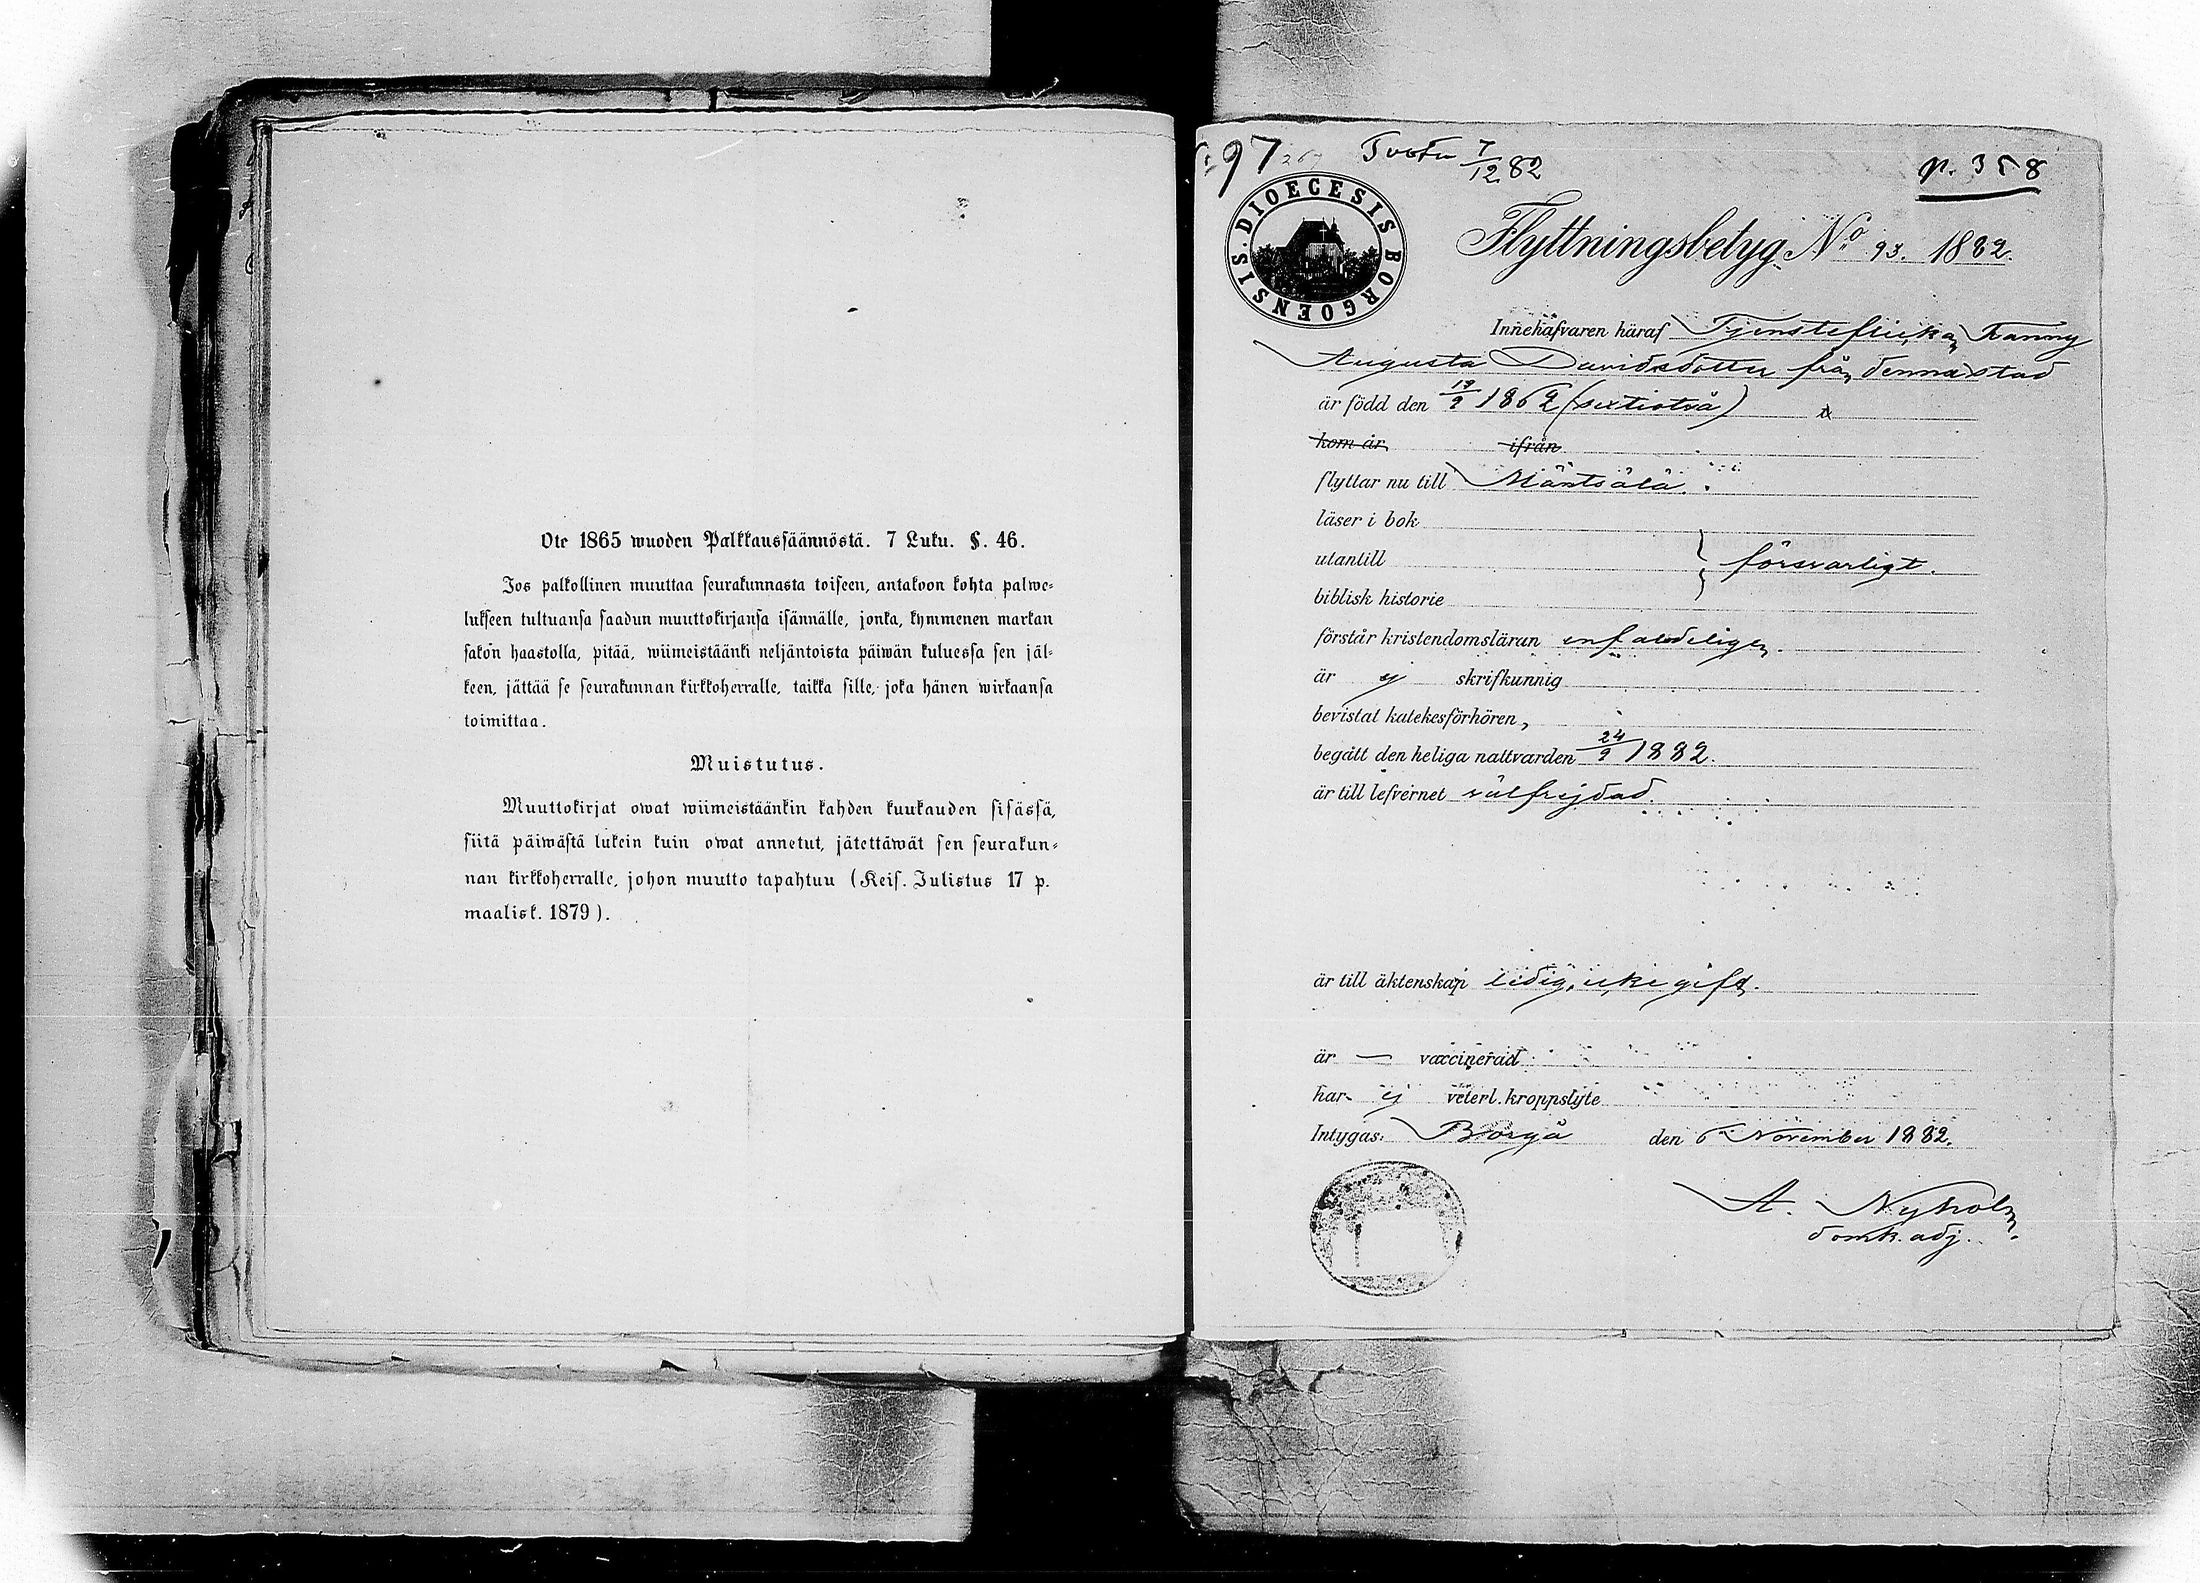 Ote 1865 wuoden Palkkaussäännöstä. 7 Luku. §. 46.
Jos palkollinen muuttaa seurakunnasta toiseen, antakoon kohta palwe-
lukseen tultuansa saadun muuttokirjansa isännälle, jonka, kymmenen markan
sakon haastolla, pitää, wiimeistäänki neljäntoista päiwän kuluessa sen jäl-
keen, jättää se seurakunnan kirkkoherralle, taikka sille, joka hänen wirkaansa
toimittaa.
Muistutus.
Muuttokirjat owat wiimeistäänkin kahden kuukauden sisässä,
siitä päiwästä lukein kuin owat annetut, jätettäwät sen seurakun-
nan kirkkoherralle, johon muutto tapahtuu (Keis. Julistus 17 p.
maalisk. 1879).
97 Tuotu 7/12 82
p. 358
DIOECESIS BORGOENSIS.
Flyttningsbetyg No 93. 1882.
Innehafvaren häraf Tjensteflickan Fanny
Augusta Davidsdotter från denna stad
är född den 19/9 1862 (sextiotvå)
kom år ifrån
flyttar nu till Mäntsälä.
läser i bok
utantill } försvarligt.
biblisk historie
förstår kristendomsläran enfaldeligen.
är ej skrifkunnig
bevistat katekesförhören,
begått den heliga nattvarden 24/9 1882.
är till lefvernet välfrejdad.
är till äktenskap ledig, icke gift.
är — vaccinerad
har ej veterl. kroppslyte
Intygas: Borgå den 6 November 1882.
A. Nyholm.
domk. adj.